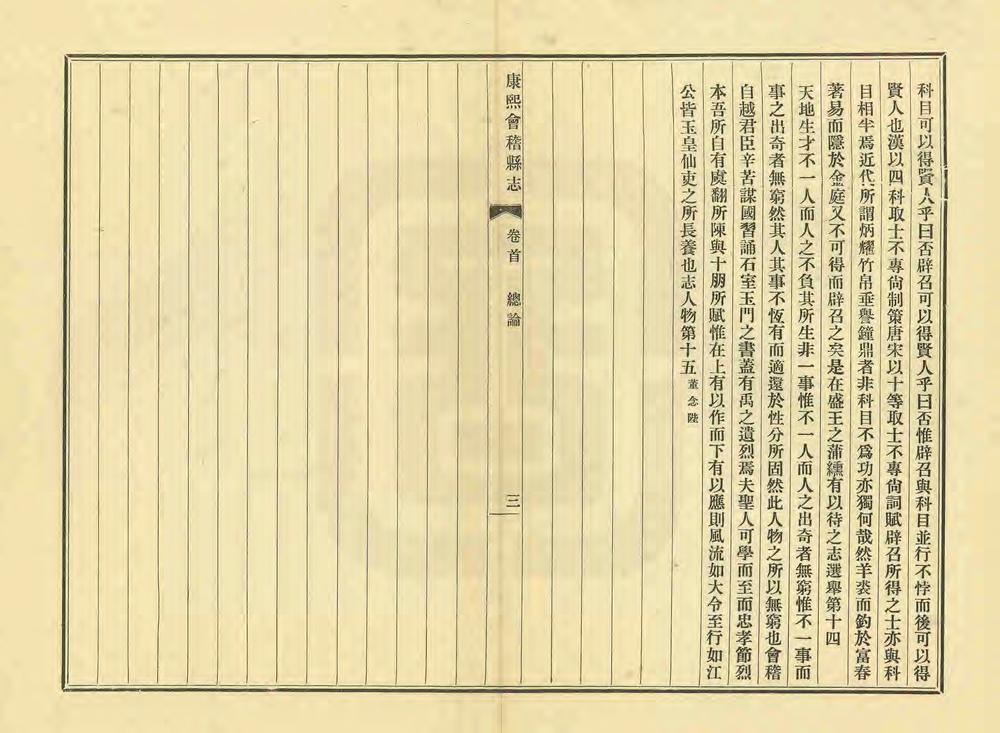 科目可以得賢人乎曰否辟召可以得賢人乎曰否惟辟召與科目並行不悖而後可以得
賢人也漢以四科取士不專尙制策唐宋以十等取士不專尙詞賦辟召所得之士亦與科
目相半焉近代所謂炳耀竹帛垂譽鐘鼎者非科目不爲功亦獨何哉然羊裘而釣於富春
著易而隱於金庭又不可得而辟召之矣是在盛王之蒲纁有以待之志選舉第十四
天地生才不一人而人之不負其所生非一事惟不一人而人之出奇者無窮惟不一事而
事之出奇者無窮然其人其事不恆有而適還於性分所固然此人物之所以無窮也會稽
自越君臣辛苦謀國習誦石室玉門之書蓋有禹之遺烈焉夫聖人可學而至而忠孝節烈
本吾所自有虞翻所陳與十朋所賦惟在上有以作而下有以應則風流如大令至行如江
公皆玉皇仙吏之所長養也志人物第十五 董念陛
康熙會稽縣志 卷首 總論 三